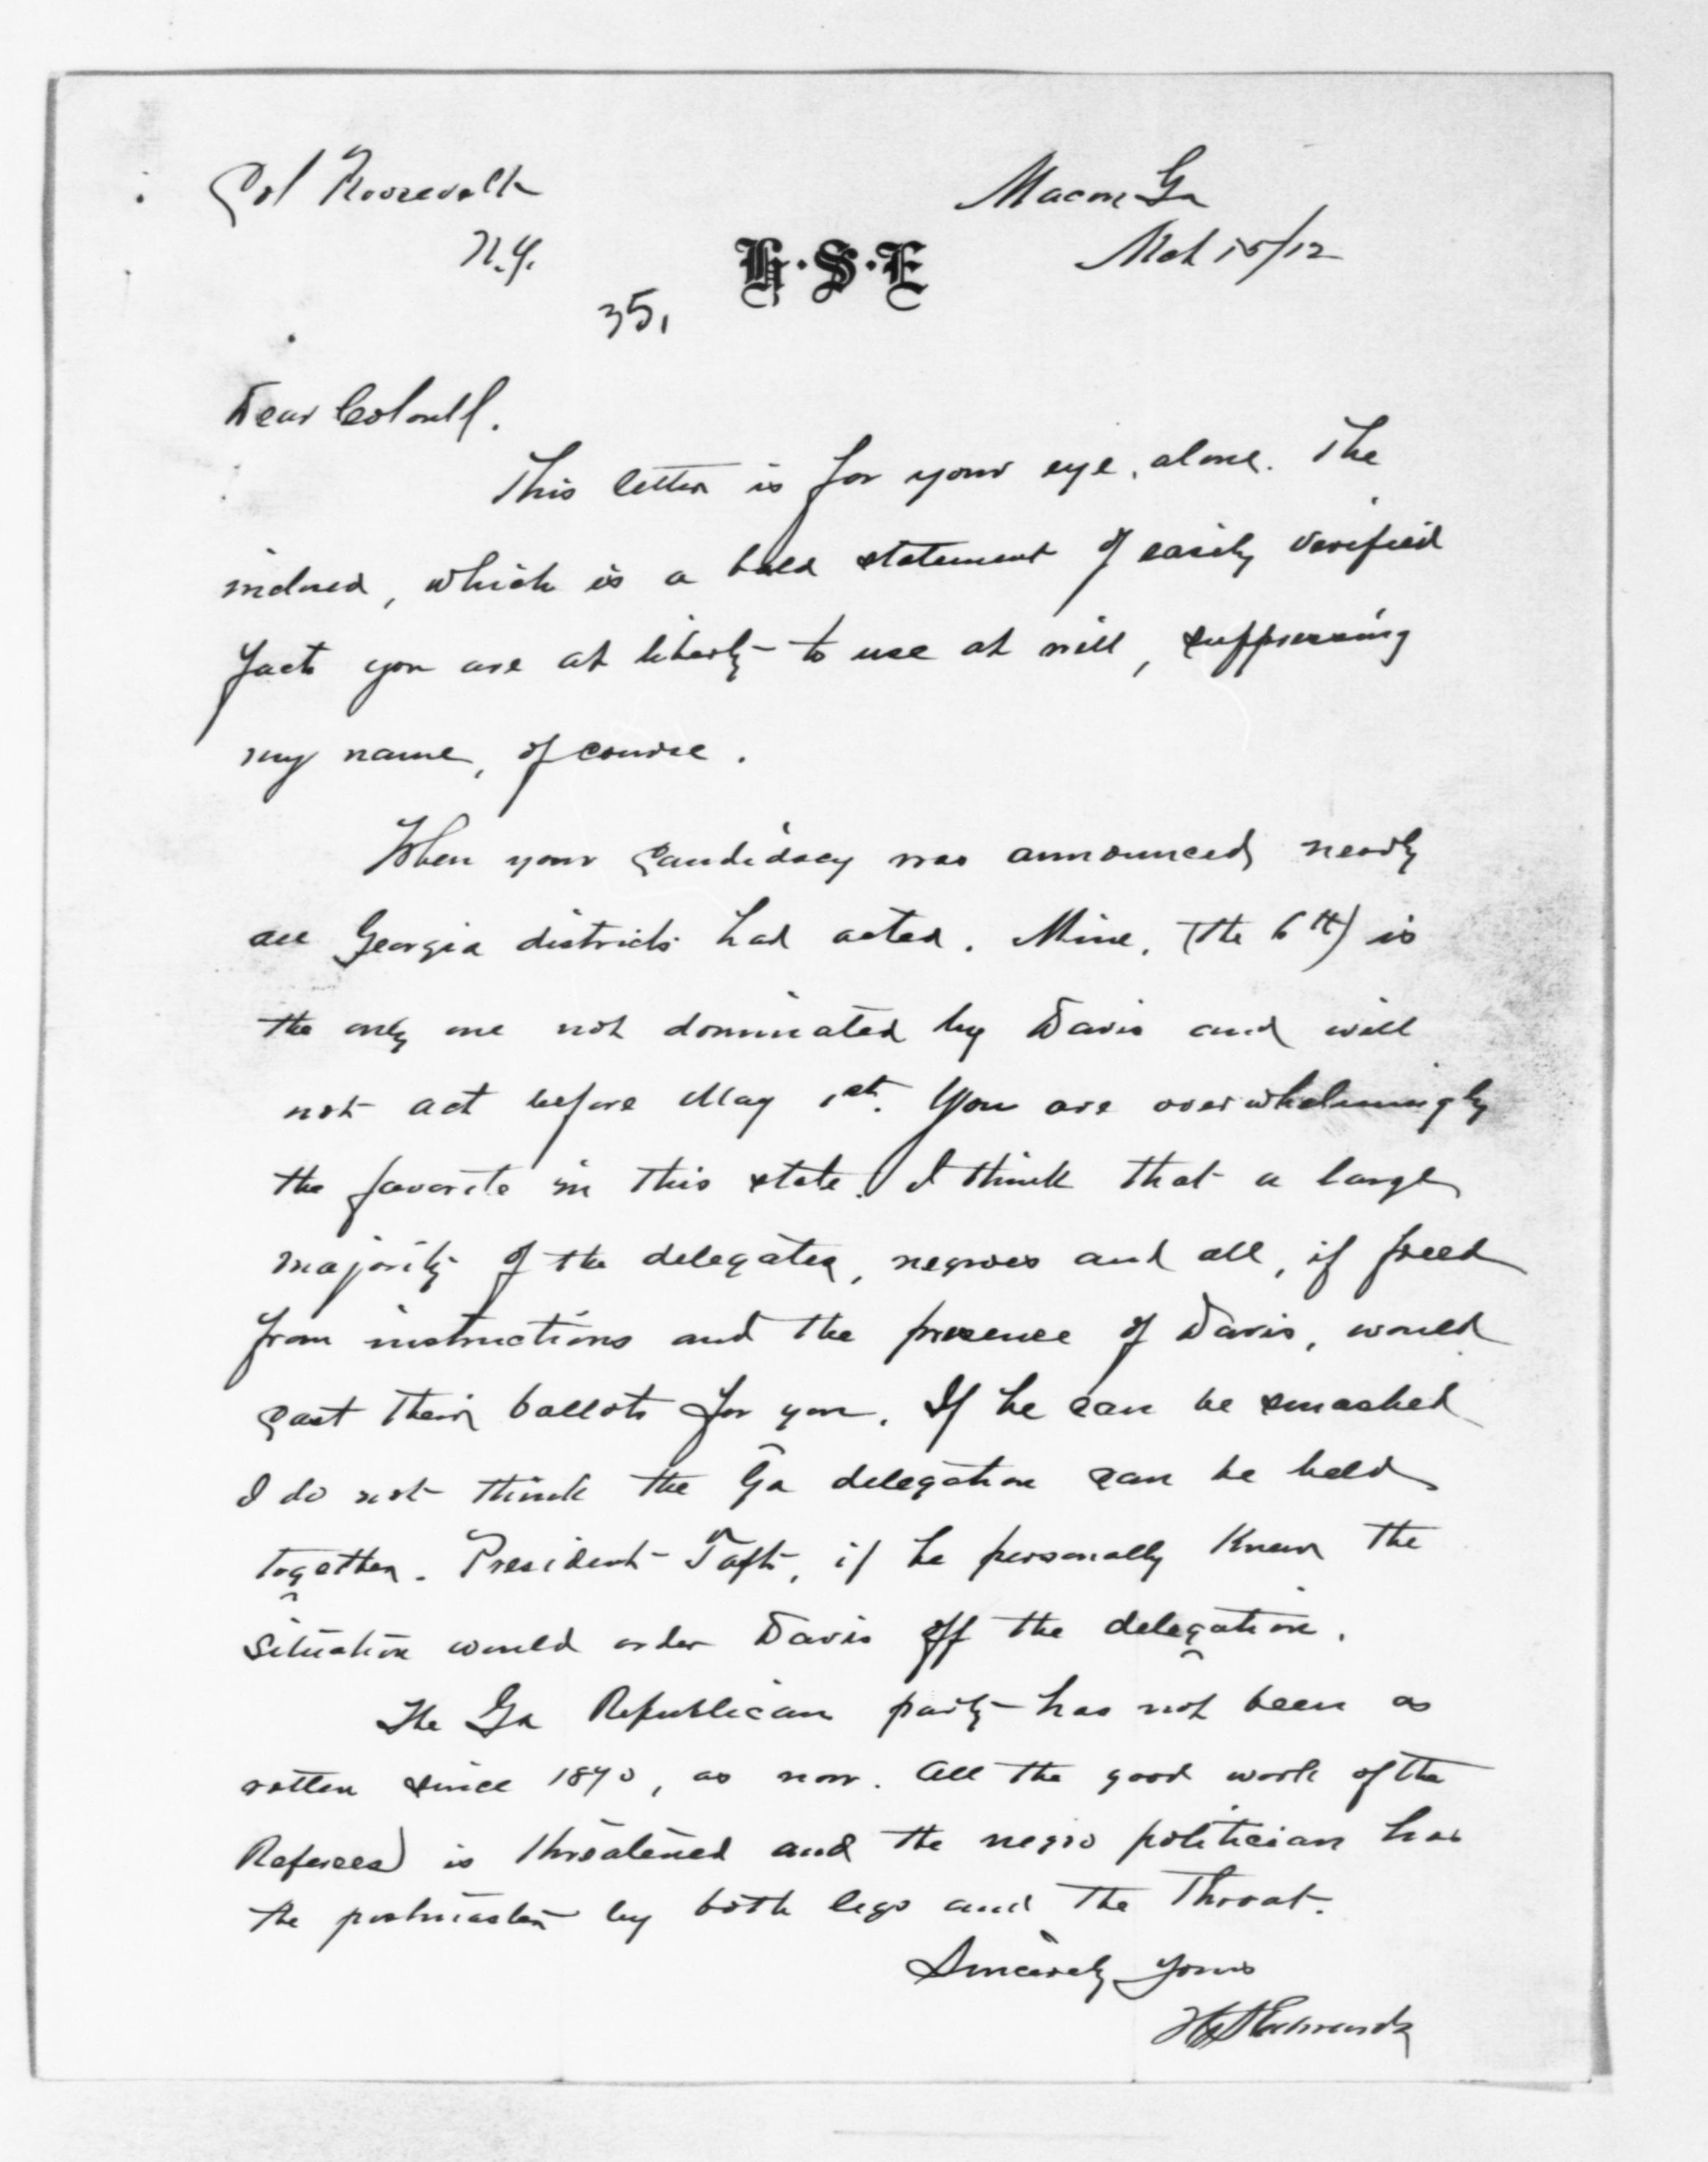 Col Roosevelt
N.Y.
Macon Ga
Mch 15/12
H·S·E
35,
Dear Colonel.
This letter is for your eye, alone. The
inclosed, which is a bald statement of easily verified
facts you are at liberty to use at will, suppressing
my name, of course.
When your candidacy was announced, nearly
all Georgia districts had acted. Mine, (the 6th) is
the only one not dominated by Davis and will
not act before May 1st. You are overwhelmingly
the favorite in this state. I think that a large
majority of the delegates, negroes and all, if freed
from instructions and the presence of Davis, would
cast their ballots for you. If he can be smashed
I do not think the Ga delegation can be held
together. President Taft, if he personally knew the
situation would order Davis off the delegation.
The Ga Republican party has not been as
rotten since 1870, as now. All the good work of the
Referees is threatened and the negro politician has
the postmaster by both legs and the throat.
Sincerely yours
HSEdwards